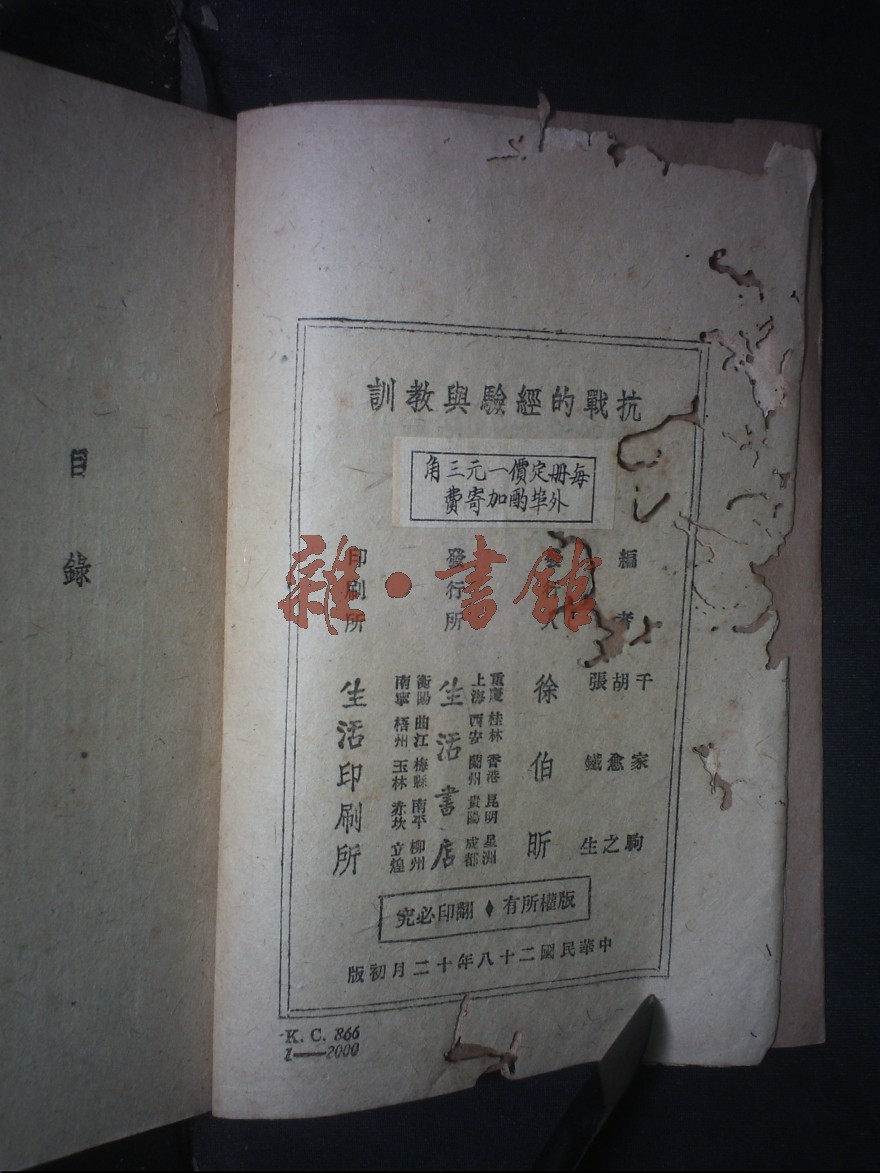 目錄
抗戰的經驗與教訓
每册定價一元三角
外埠酌加寄費
編者
千家駒
胡愈之
張鐵生
人
徐伯昕
發行所
重慶 桂林 香港 昆明 星洲
上海 西安 蘭州 貴陽 成都
生活書店
衡陽 曲江 梅縣 南平 柳州
南寧 梧州 玉林 赤坎 立煌
印刷所
生活印刷所
版權所有♦翻印必究
中華民國二十八年十二月初版
K. C. 866
1—2000
雜·書館